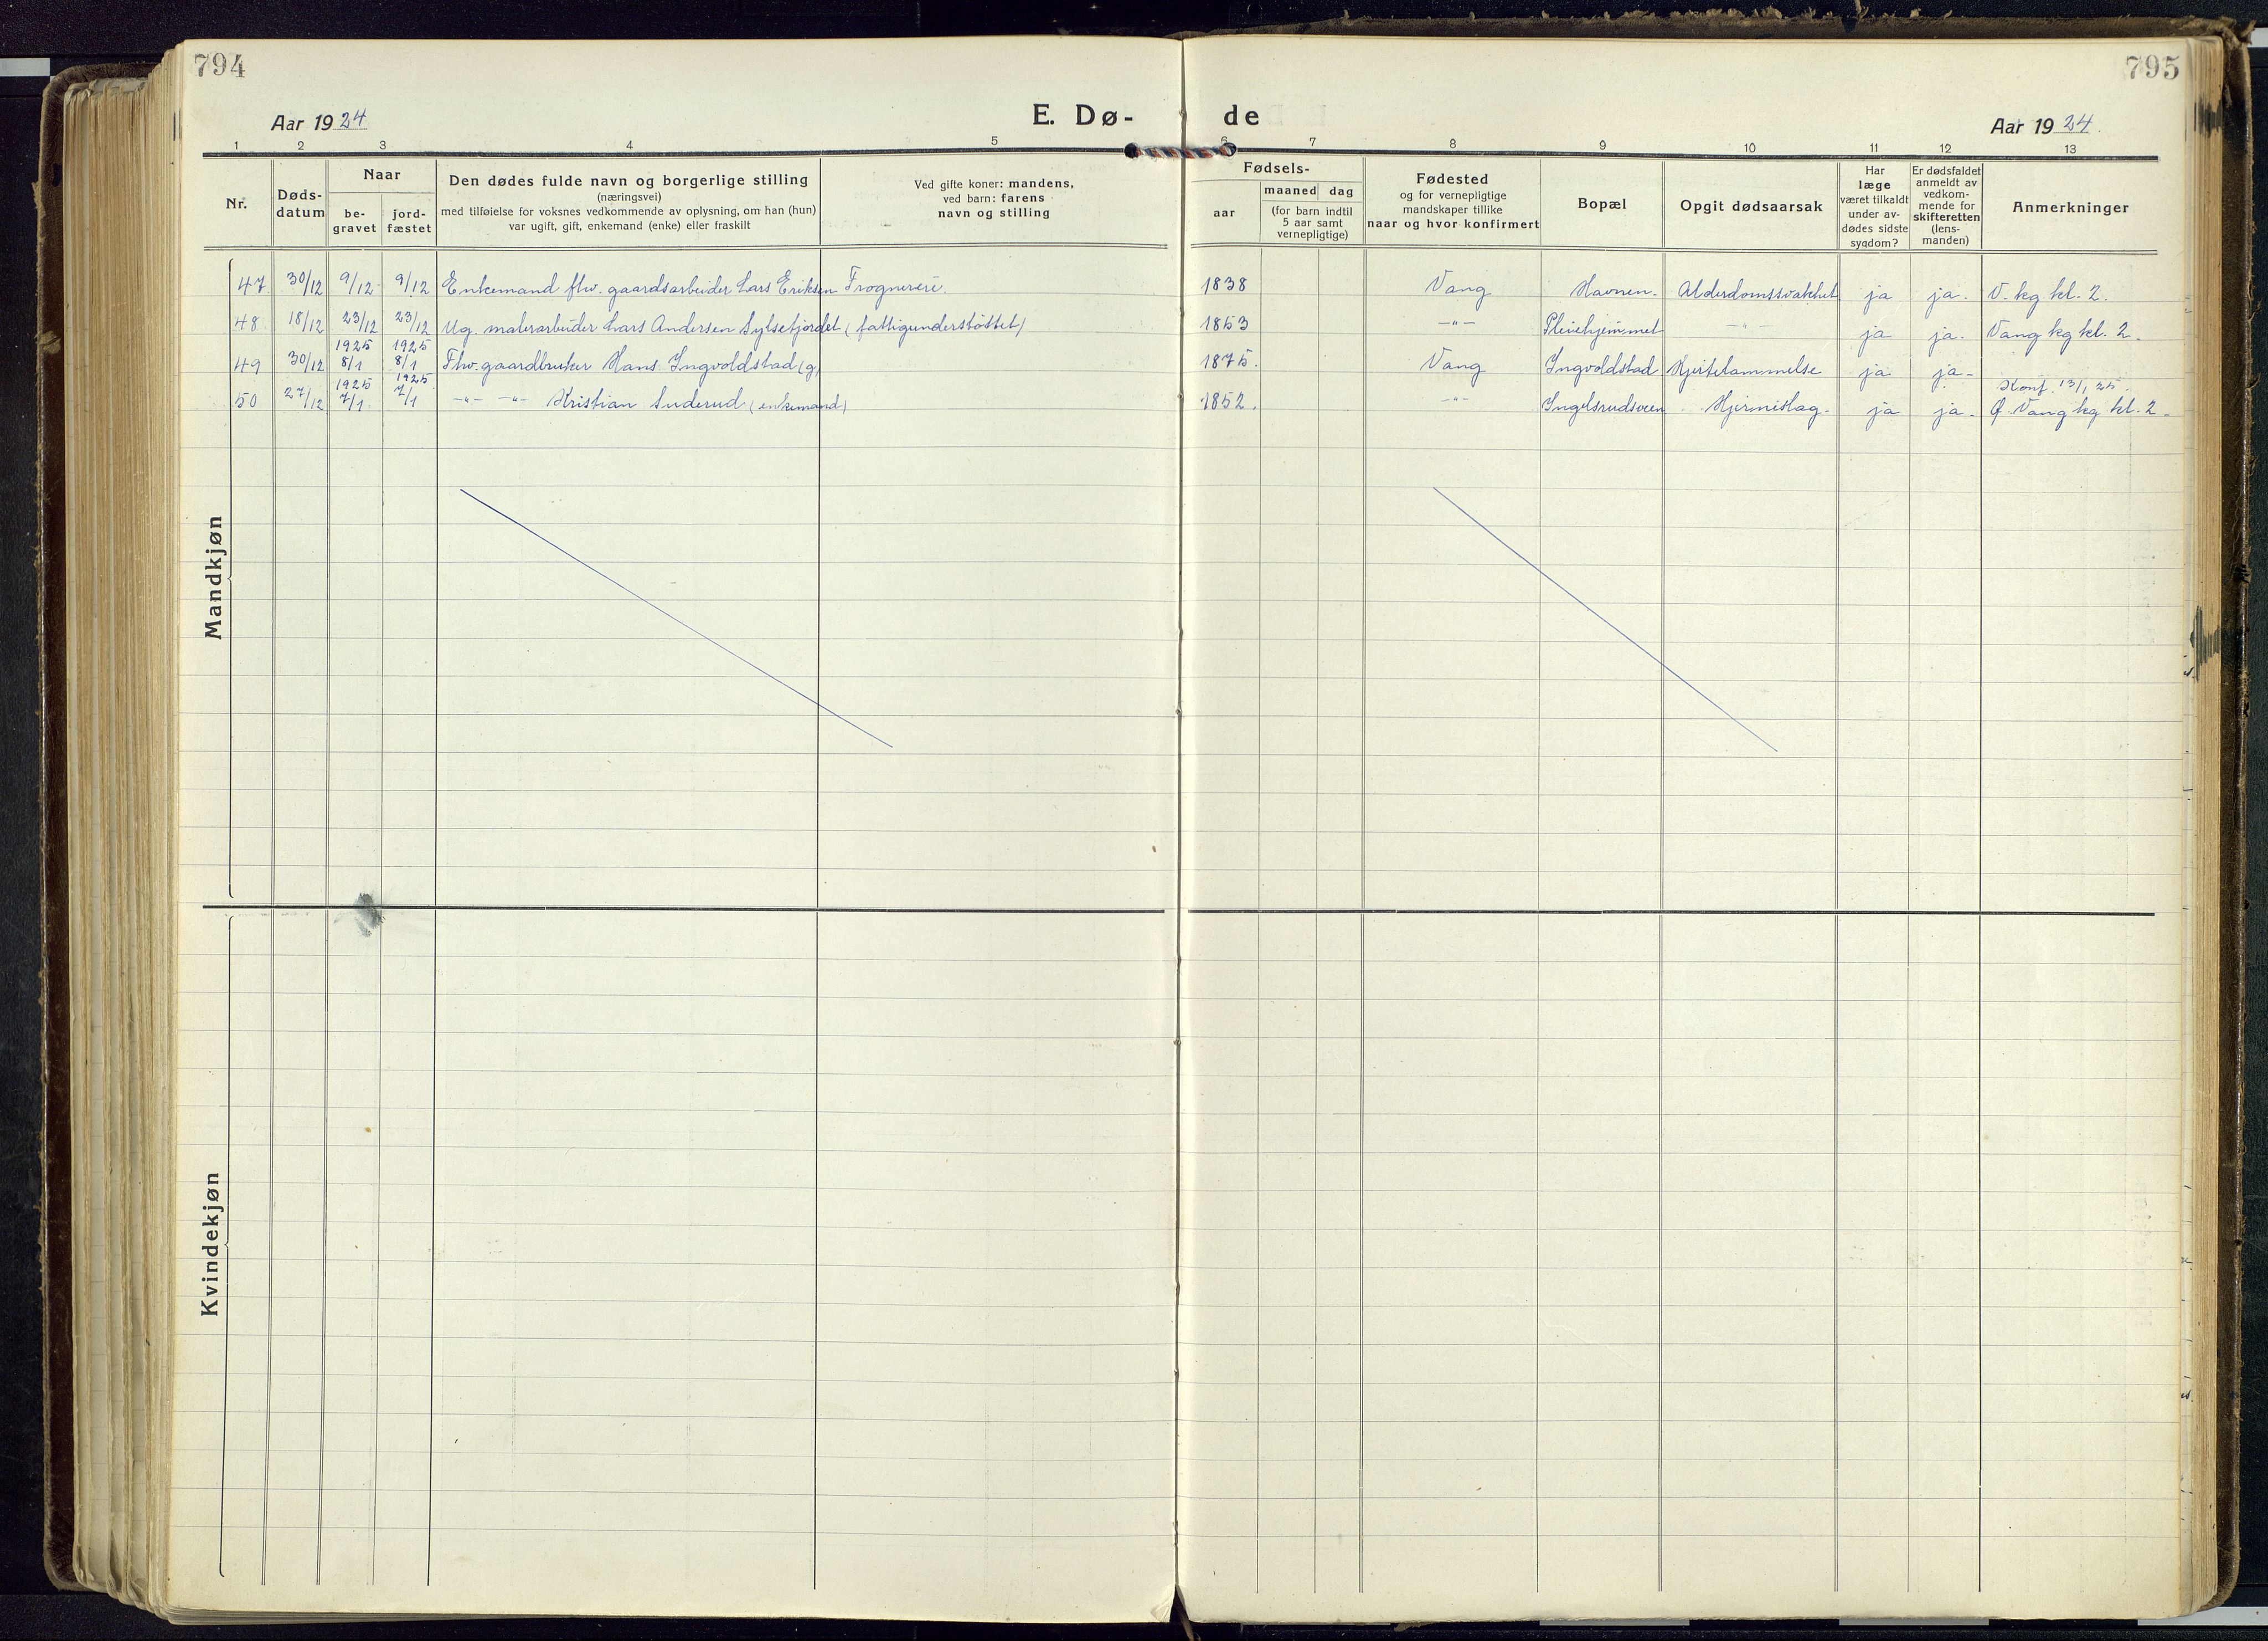 794
795
Aar 1924
E. Dø-
de
Aar 1924.
1 2 3 4 5 6 7 8 9 10 11 12 13
Nr.
Døds-
datum
Naar
be-
gravet
jord-
fæstet
Den dødes fulde navn og borgerlige stilling
(næringsvei)
med tilføielse for voksnes vedkommende av oplysning, om han (hun)
var ugift, gift, enkemand (enke) eller fraskilt
Ved gifte koner: mandens,
ved barn: farens
navn og stilling
Fødsels-
aar
maaned dag
(for barn indtil
5 aar samt
vernepligtige)
Fødested
og for vernepligtige
mandskaper tillike
naar og hvor konfirmert
Bopæl
Opgit dødsaarsak
Har
læge
været tilkaldt
under av-
dødes sidste
sygdom?
Er dødsfaldet
anmeldt av
vedkom-
mende for
skifteretten
(lens-
manden)
Anmerkninger
Mandkjøn
47. 30/12 9/12 9/12 Enkemand fhv. gaardsarbeider Lars Eriksen Frognereie. 1838 Vang Havnen. Alderdomssvakhet ja ja. V. kg kl. 2.
48 18/12 23/12 23/12 Ug. malerarbeider Lars Andersen Sylsetjordet (fattigunderstøttet) 1853 -"- Pleiehjemmet -"- ja ja. Vang kg kl. 2.
1925 1925
49 30/12 8/1 8/1 Fhv. gaardbruker Hans Ingvoldstad (g. 1875. Vang Ingvoldstad Hjertelammelse ja ja-
1925 1925 Konf. 13/1 25.
50 27/12 7/1 7/1 -"- -"- Kristian Suderud (enkemand) 1852. -"- Ingelsrudsveen Hjerneslag. ja ja- Vang kg kl. 2-
Kvindekjøn